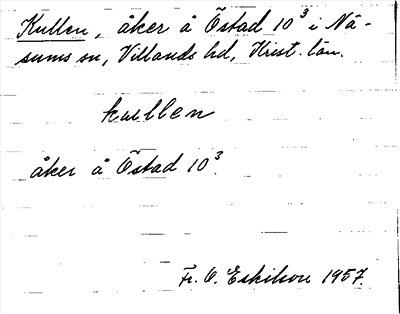 Kullen, åker å Östad 10³ i Nä-
sums sn, Villands hd, Krist. län.
kullen
åker å Östad 10³.
Fr. O. Eskilson 1957.